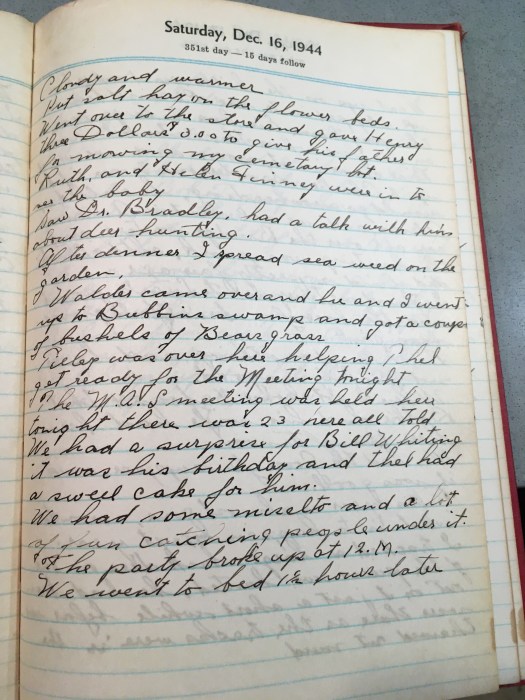 Saturday, Dec. 16, 1944
351st day — 15 days follow
Cloudy and warmer
Put salt hay on the flower beds.
Went over to the store and gave Henry
three Dollars 3.00 to give his father
for mowing my cemetary lot.
Ruth, and Helen Finney were in to
see the baby
Saw Dr. Bradley, had a talk with him
about deer hunting.
After denner I spread sea weed on the
garden.
Walder came over and he and I went
up to Bubbins swamp and got a coupe
of bushels of Bears grass
was over here helping Phel
get ready for the Meeting tonight
The M.A.S meeting was held here
tonight there was 23 here all told
We had a surprise for Bill Whiting
it was his birthday and Thel had
a swell cake for him.
We had some miselto and a lot
of fun catching people under it.
The party broke up at 12. M.
We went to bed 1½ hours later